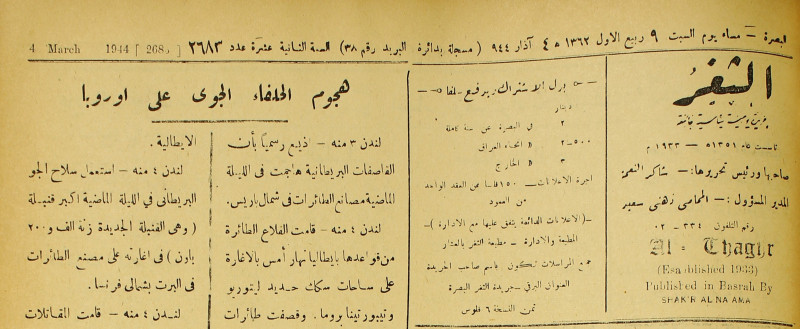 البصرة — مساء يوم السبت ٩ ربيع الاول ١٣٦٢ ه ٤ آذار ٩٤٤ ( مسجلة بدائرة البريد رقم ٣٨) السنة الثانية عشرة عدد ٢٦٨٣
4 March 1944 [ 2683 ]
الثغر
تأسست عام ١٣٥١ه — ١٩٣٣ م
صاحبها ورئيس تحريرها: — شاكر النعمة
المدير المسؤول: — المحامي زهدي سعيد
رقم التلفون ٣٣٤ — ٠٢
Al - Thaghr
(Established 1933)
Published in Basrah By
SHAKIR AL NAAMA
بدل الاشتراك ويدفع سلفا
دينار
٢ في البصرة عن سنة كاملة
٥٠٠-٢ » انحاء العراق
٣ » الخارج
اجرة الاعلانات — ١٥٠ فلسا عن العقد الواحد
من العمود
—( الاعلانات الدائمة يتفق عليها مع الادارة )—
المطبعة والادارة — مطبعة الثغر بالعشار
جميع المراسلات تكون باسم صاحب الجريدة
العنوان البرقي — جريدة الثغر البصرة
ثمن النسخة ٦ فلوس
هجوم الحلفاء الجوى على اوروبا
لندن ٣ منه — اذيع رسمياً بأن
القاصفات البريطانية هاجمت في الليلة
الماضية مصانع الطائرات في شمال باريس.
لندن ٤ منه — قامت القلاع الطائرة
من قواعدها بإيطاليا نهار أمس بالاغارة
على ساحات سكك حديد ليتوريو
وتيبورتينا بروما. وقصفت طائرات
الايطالية.
لندن ٤ منه — استعمل سلاح الجو
البريطاني في الليلة الماضية اكبر قنبلة
( وهى القنبلة الجديدة زنة الف و ٢٠٠
باون ) في اغارته على مصنع الطائرات
في البرت بشمالى فرنسا.
لندن ٤ منه — قامت المقاتلات